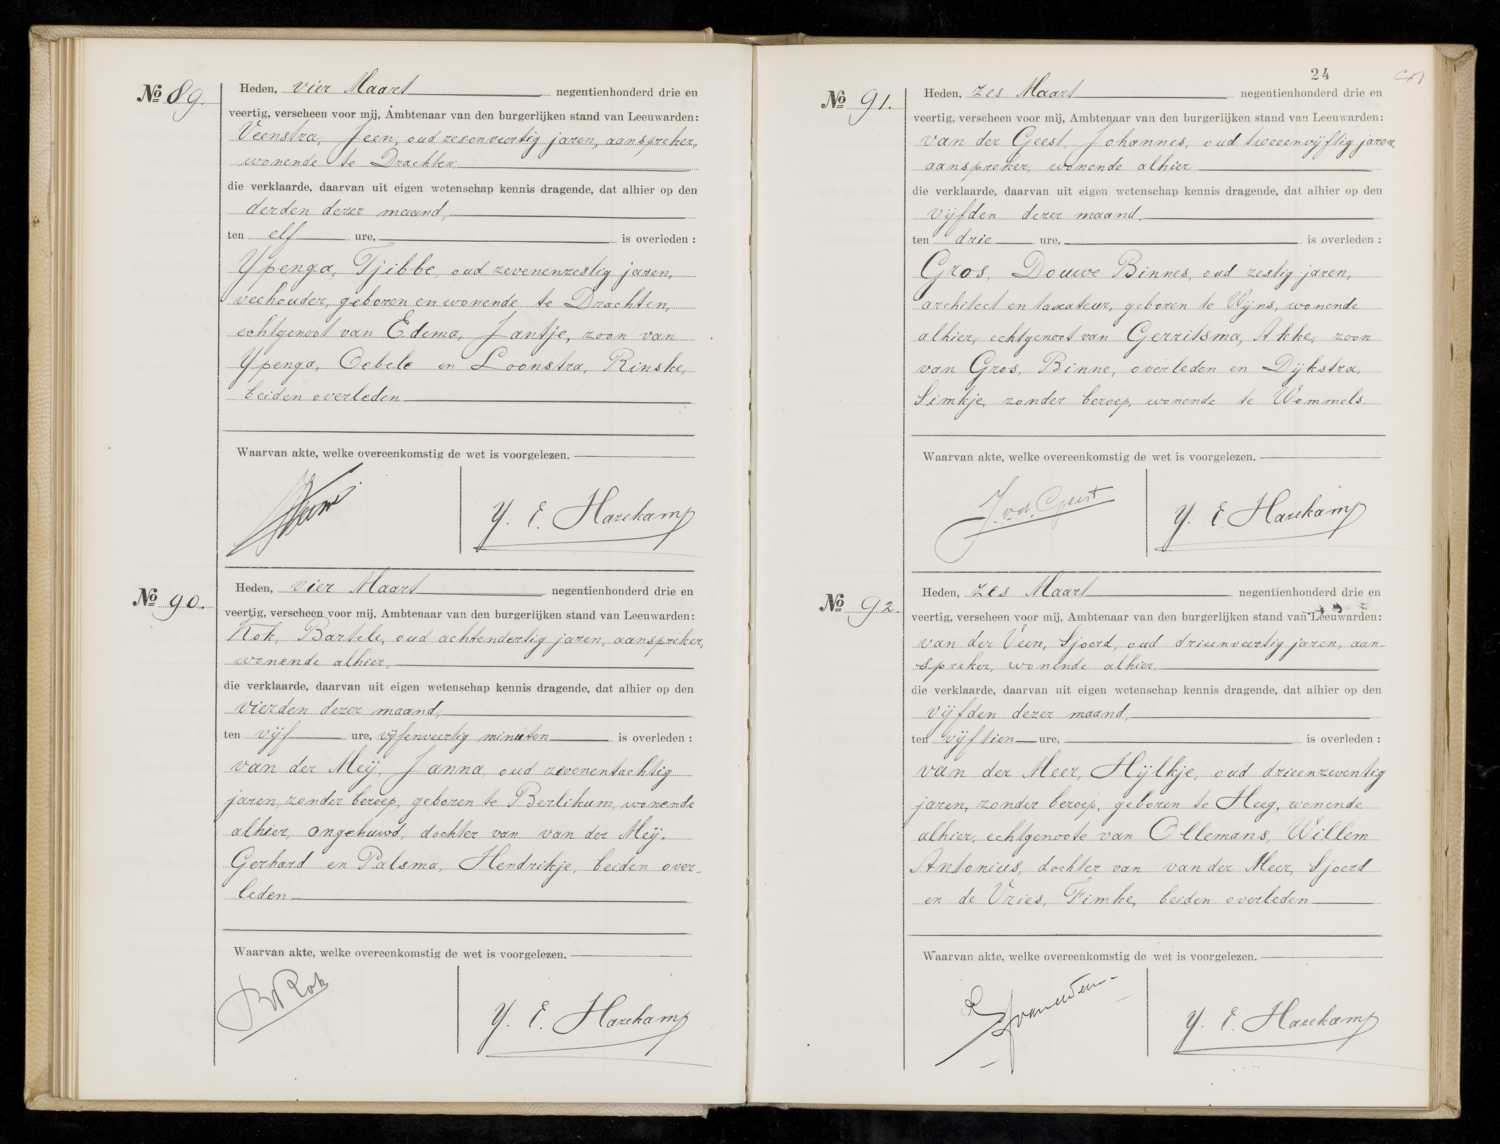 No 89.
Heden, vier Maart negentienhonderd drie en
veertig, verscheen voor mij, Ambtenaar van den burgerlijken stand van Leeuwarden:
Veenstra, Jeen, oud zesenveertig jaren, aanspreker,
wonende te Drachten
die verklaarde, daarvan uit eigen wetenschap kennis dragende, dat alhier op den
derden dezer maand,
ten elf ure, is overleden :
Ypenga, Tjibbe, oud zevenenzestig jaren,
veehouder, geboren en wonende te Drachten,
echtgenoot van Edema, Jantje, zoon van
Ypenga, Oebele en Loonstra, Rinske,
beiden overleden
Waarvan akte, welke overeenkomstig de wet is voorgelezen.
Y. E. Harekamp
No 90.
Heden, vier Maart negentienhonderd drie en
veertig, verscheen voor mij, Ambtenaar van den burgerlijken stand van Leeuwarden:
Kok, Bartele, oud achtendertig jaren, aanspreker,
wonende alhier,
die verklaarde, daarvan uit eigen wetenschap kennis dragende, dat alhier op den
vierden dezer maand,
ten vijf ure, vijfenveertig minuten is overleden :
van der Meij, Janna, oud zevenentachtig
jaren, zonder beroep, geboren te Berlikum, wonende
alhier, ongehuwd, dochter van van der Meij,
Gerhard en Palsma, Hendrikje, beiden over-
leden
Waarvan akte, welke overeenkomstig de wet is voorgelezen.
B Kok
Y. E. Harekamp
24
No 91.
Heden, zes Maart negentienhonderd drie en
veertig, verscheen voor mij, Ambtenaar van den burgerlijken stand van Leeuwarden:
van der Geest, Johannes, oud tweeenvijftig jaren,
aanspreker, wonende alhier
die verklaarde, daarvan uit eigen wetenschap kennis dragende, dat alhier op den
vijfden dezer maand.
ten drie ure, is overleden :
Gros, Douwe Binnes, oud zestig jaren,
architect en taxateur, geboren te Wijns, wonende
alhier, echtgenoot van Gerritsma, Akke, zoon
van Gros, Binne, overleden en Dijkstra,
Simkje, zonder beroep, wonende te Wommels
Waarvan akte, welke overeenkomstig de wet is voorgelezen.
J. v.d. Geest
Y. E. Harekamp
No 92.
Heden, zes Maart negentienhonderd drie en
veertig, verscheen voor mij, Ambtenaar van den burgerlijken stand van Leeuwarden:
van der Veen, Sjoerd, oud drieenveertig jaren, aan-
spreker, wonende alhier,
die verklaarde, daarvan uit eigen wetenschap kennis dragende, dat alhier op den
vijfden dezer maand,
ten vijftien ure, is overleden :
van der Meer, Hijlkje, oud drieenzeventig
jaren, zonder beroep, geboren te Heeg, wonende
alhier, echtgenoote van Ollemans, Willem
Antonius, dochter van van der Meer, Sjoerd
en de Vries, Fimke, beiden overleden
Waarvan akte, welke overeenkomstig de wet is voorgelezen.
Y. E. Harekamp